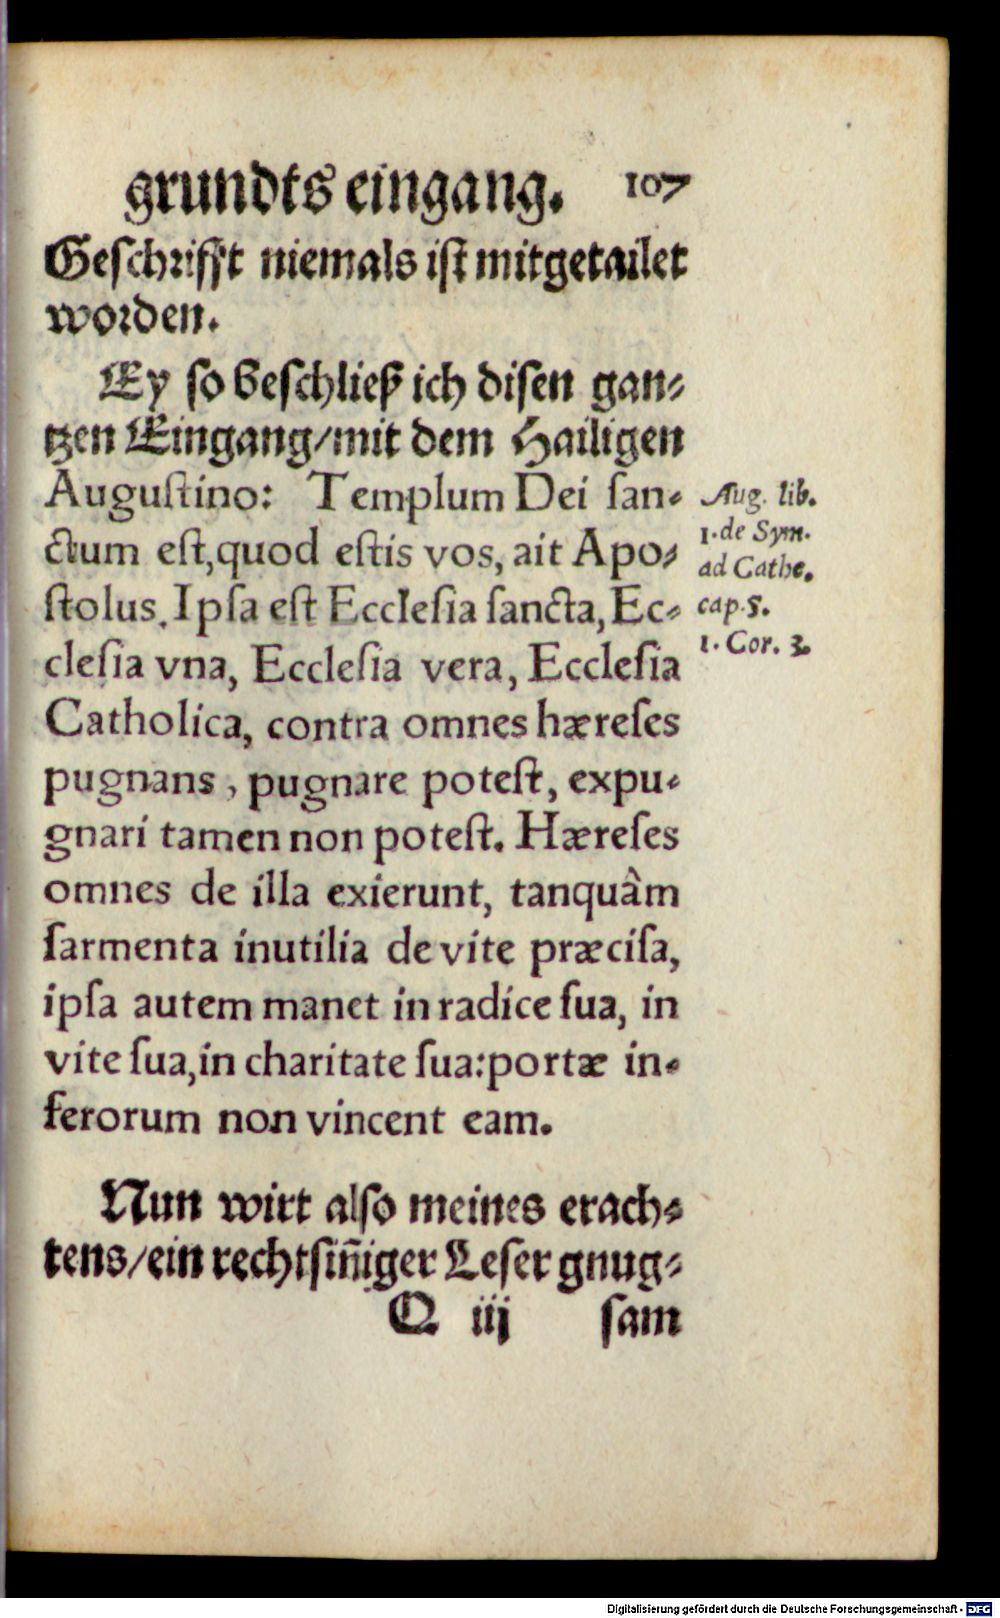 grundts eingang. 107
Geſchrifft niemals iſt mitgetailet
worden.
Ey ſo beſchließ ich diſen gan⸗
tzen Eingang/mit dem Hailigen
Auguſtino: Templum Dei ſan⸗
ctum eſt,quod eſtis vos, ait Apo⸗
ſtolus. Ipſa eſt Eccleſia ſancta, Ec⸗
cleſia vna, Eccleſia vera, Eccleſia
Catholica, contra omnes hæreſes
pugnans, pugnare poteſt, expu⸗
gnari tamen non poteſt. Hæreſes
omnes de illa exierunt, tanquâm
ſarmenta inutilia de vite præciſa,
ipſa autem manet in radice ſua, in
vite ſua,in charitate ſua:portæ in⸗
ferorum non vincent eam.
Aug. lib.
1. de Sym.
ad Cathe.
cap. 5.
1. Cor. 3.
Nun wirt alſo meines erach⸗
tens/ein rechtſiñiger Leſer gnug⸗
Q iij ſam
Digitalisierung gefördert durch die Deutsche Forschungsgemeinschaft - DFG